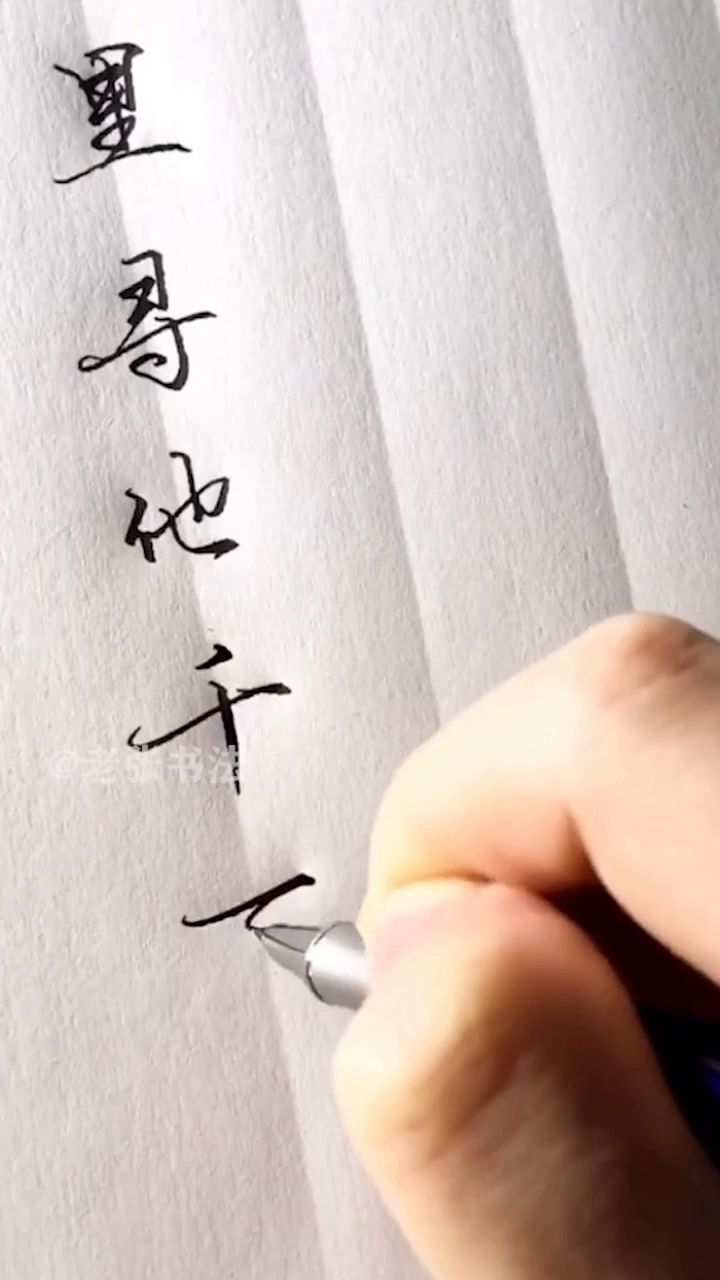 里寻他千
@老张书法